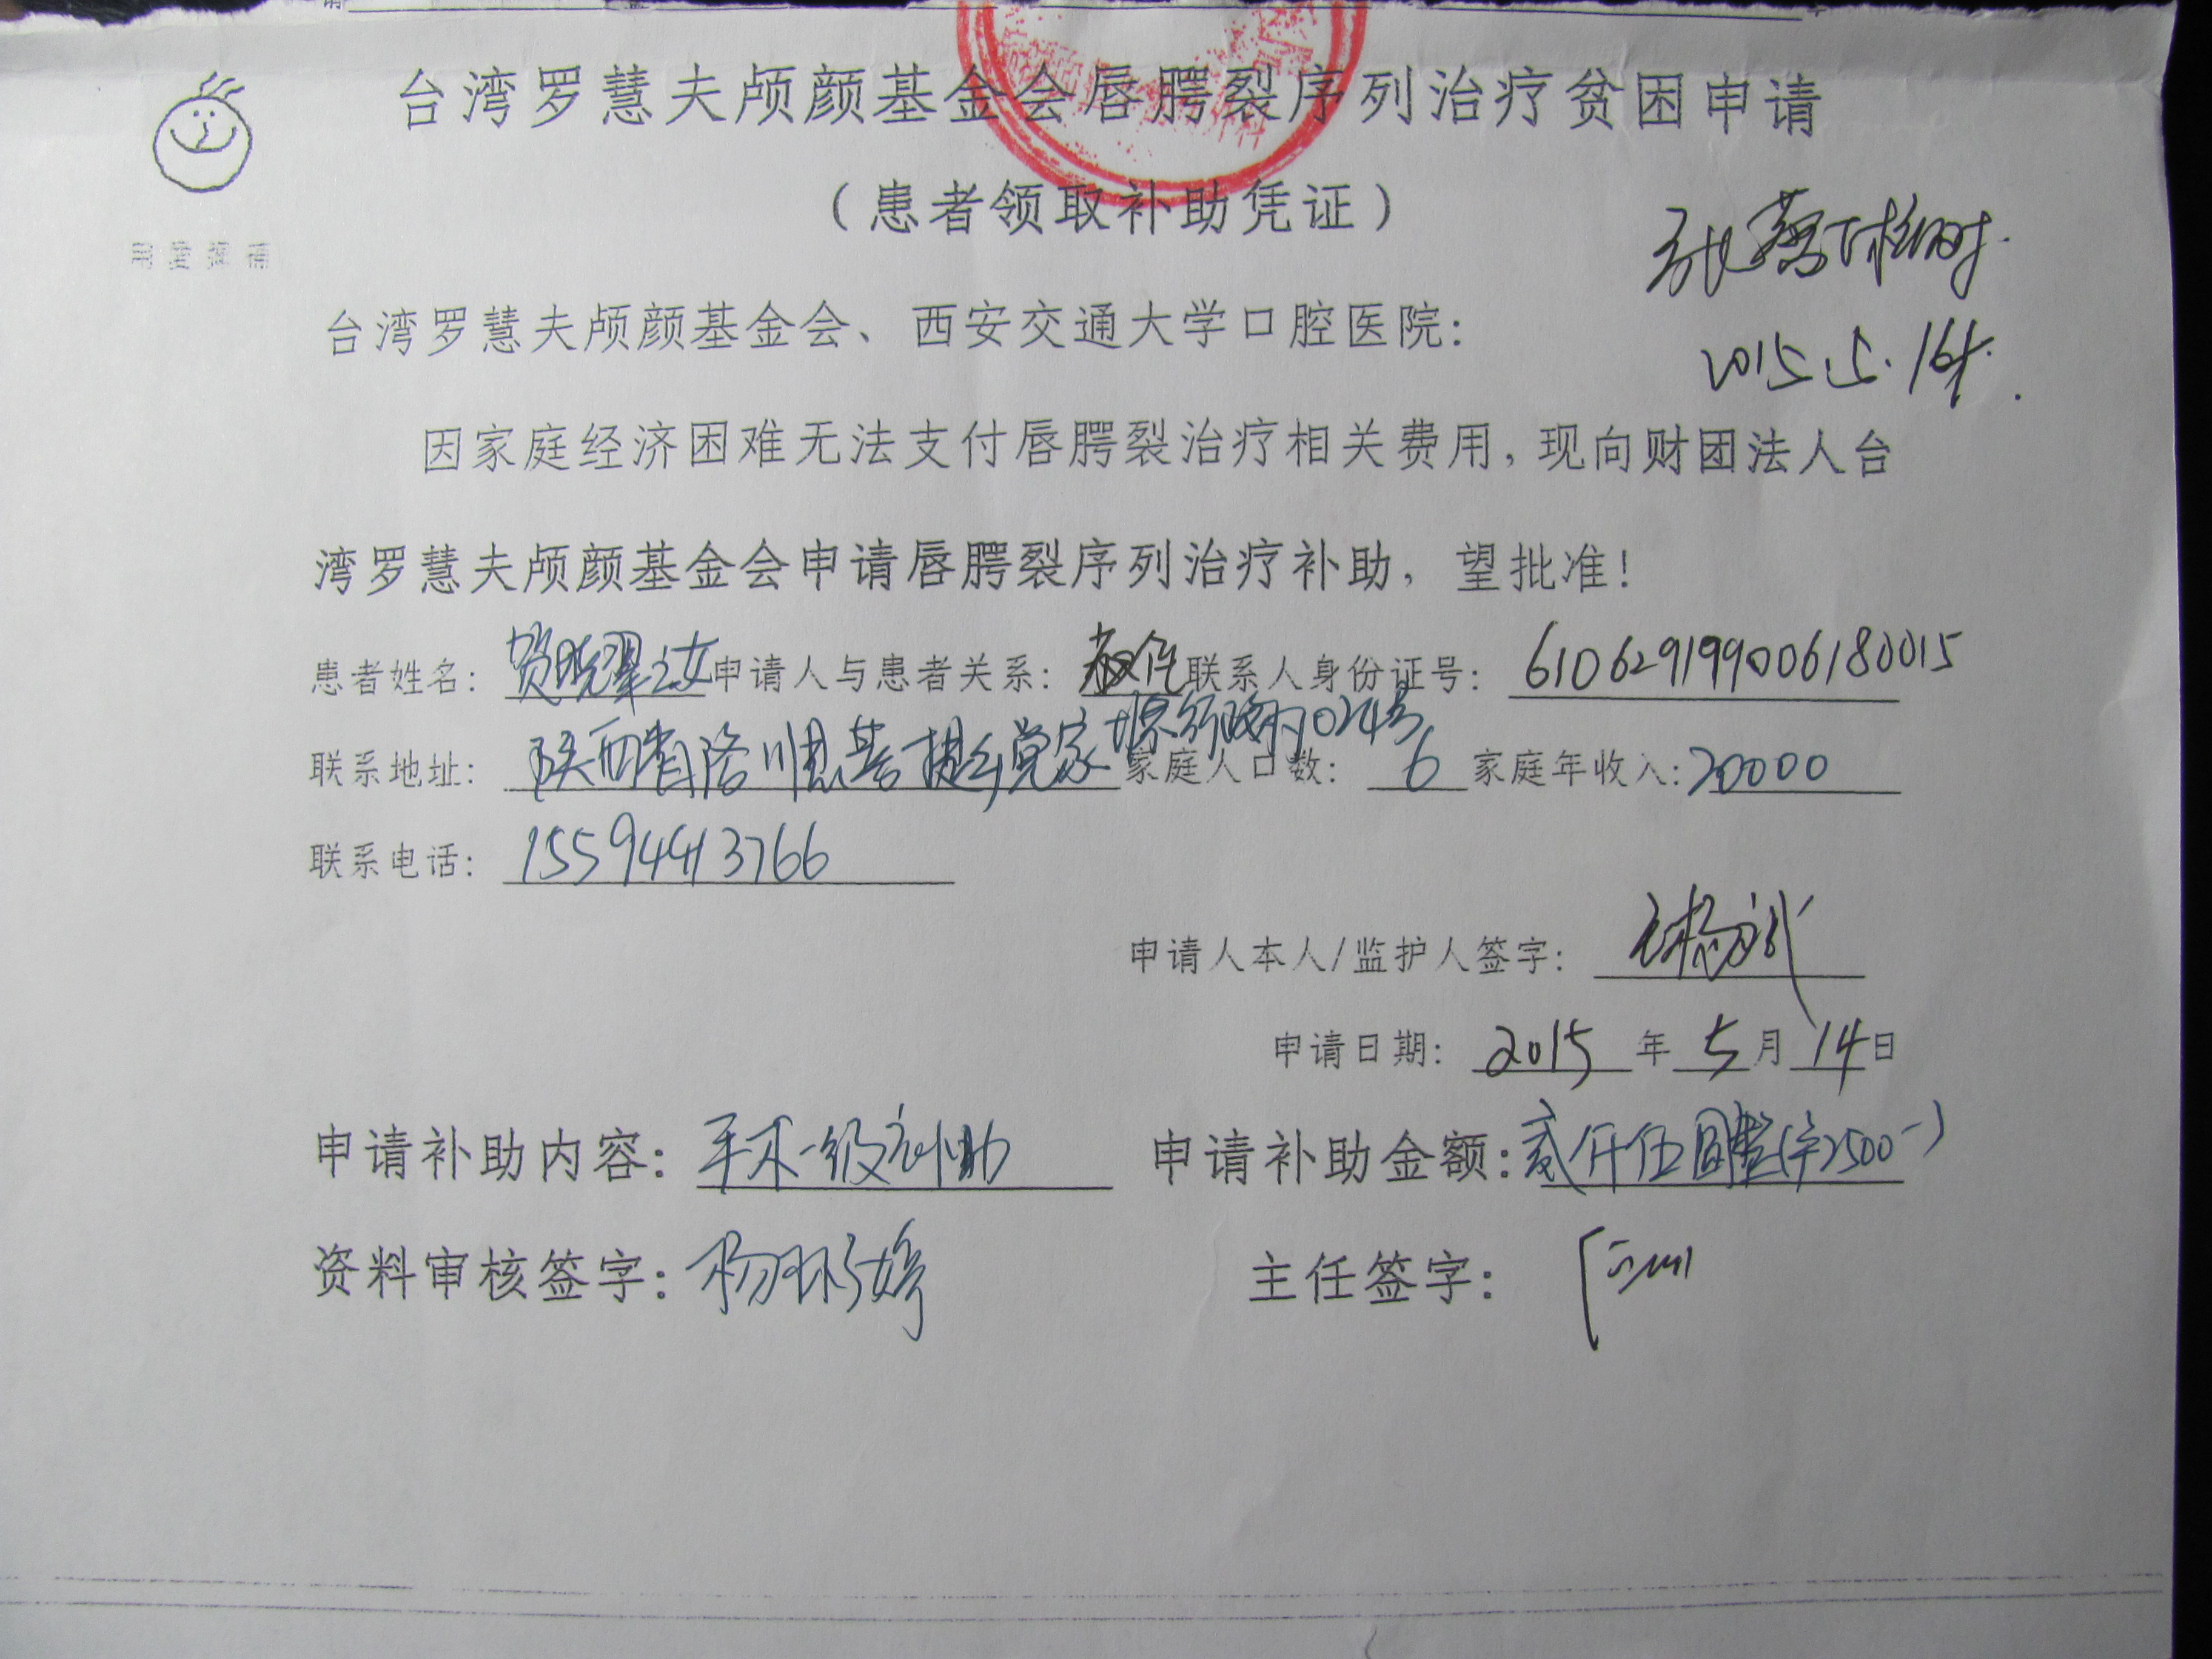 台湾罗慧夫颅颜基金会唇腭裂序列治疗贫困申请
（患者领取补助凭证）
用爱弥补
台湾罗慧夫颅颜基金会、西安交通大学口腔医院：
2015.5.14
因家庭经济困难无法支付唇腭裂治疗相关费用，现向财团法人台
湾罗慧夫颅颜基金会申请唇腭裂序列治疗补助，望批准！
患者姓名：贺晓翠之女 申请人与患者关系： 联系人身份证号：610629199006180015
联系地址：陕西省洛川县菩提乡党家 024号 家庭人口数：6 家庭年收入：20000
联系电话：15594413766
申请人本人/监护人签字：
申请日期：2015年5月14日
申请补助内容：手术一级补助 申请补助金额：贰仟伍圆整(¥2500-)
资料审核签字：杨 婷 主任签字：